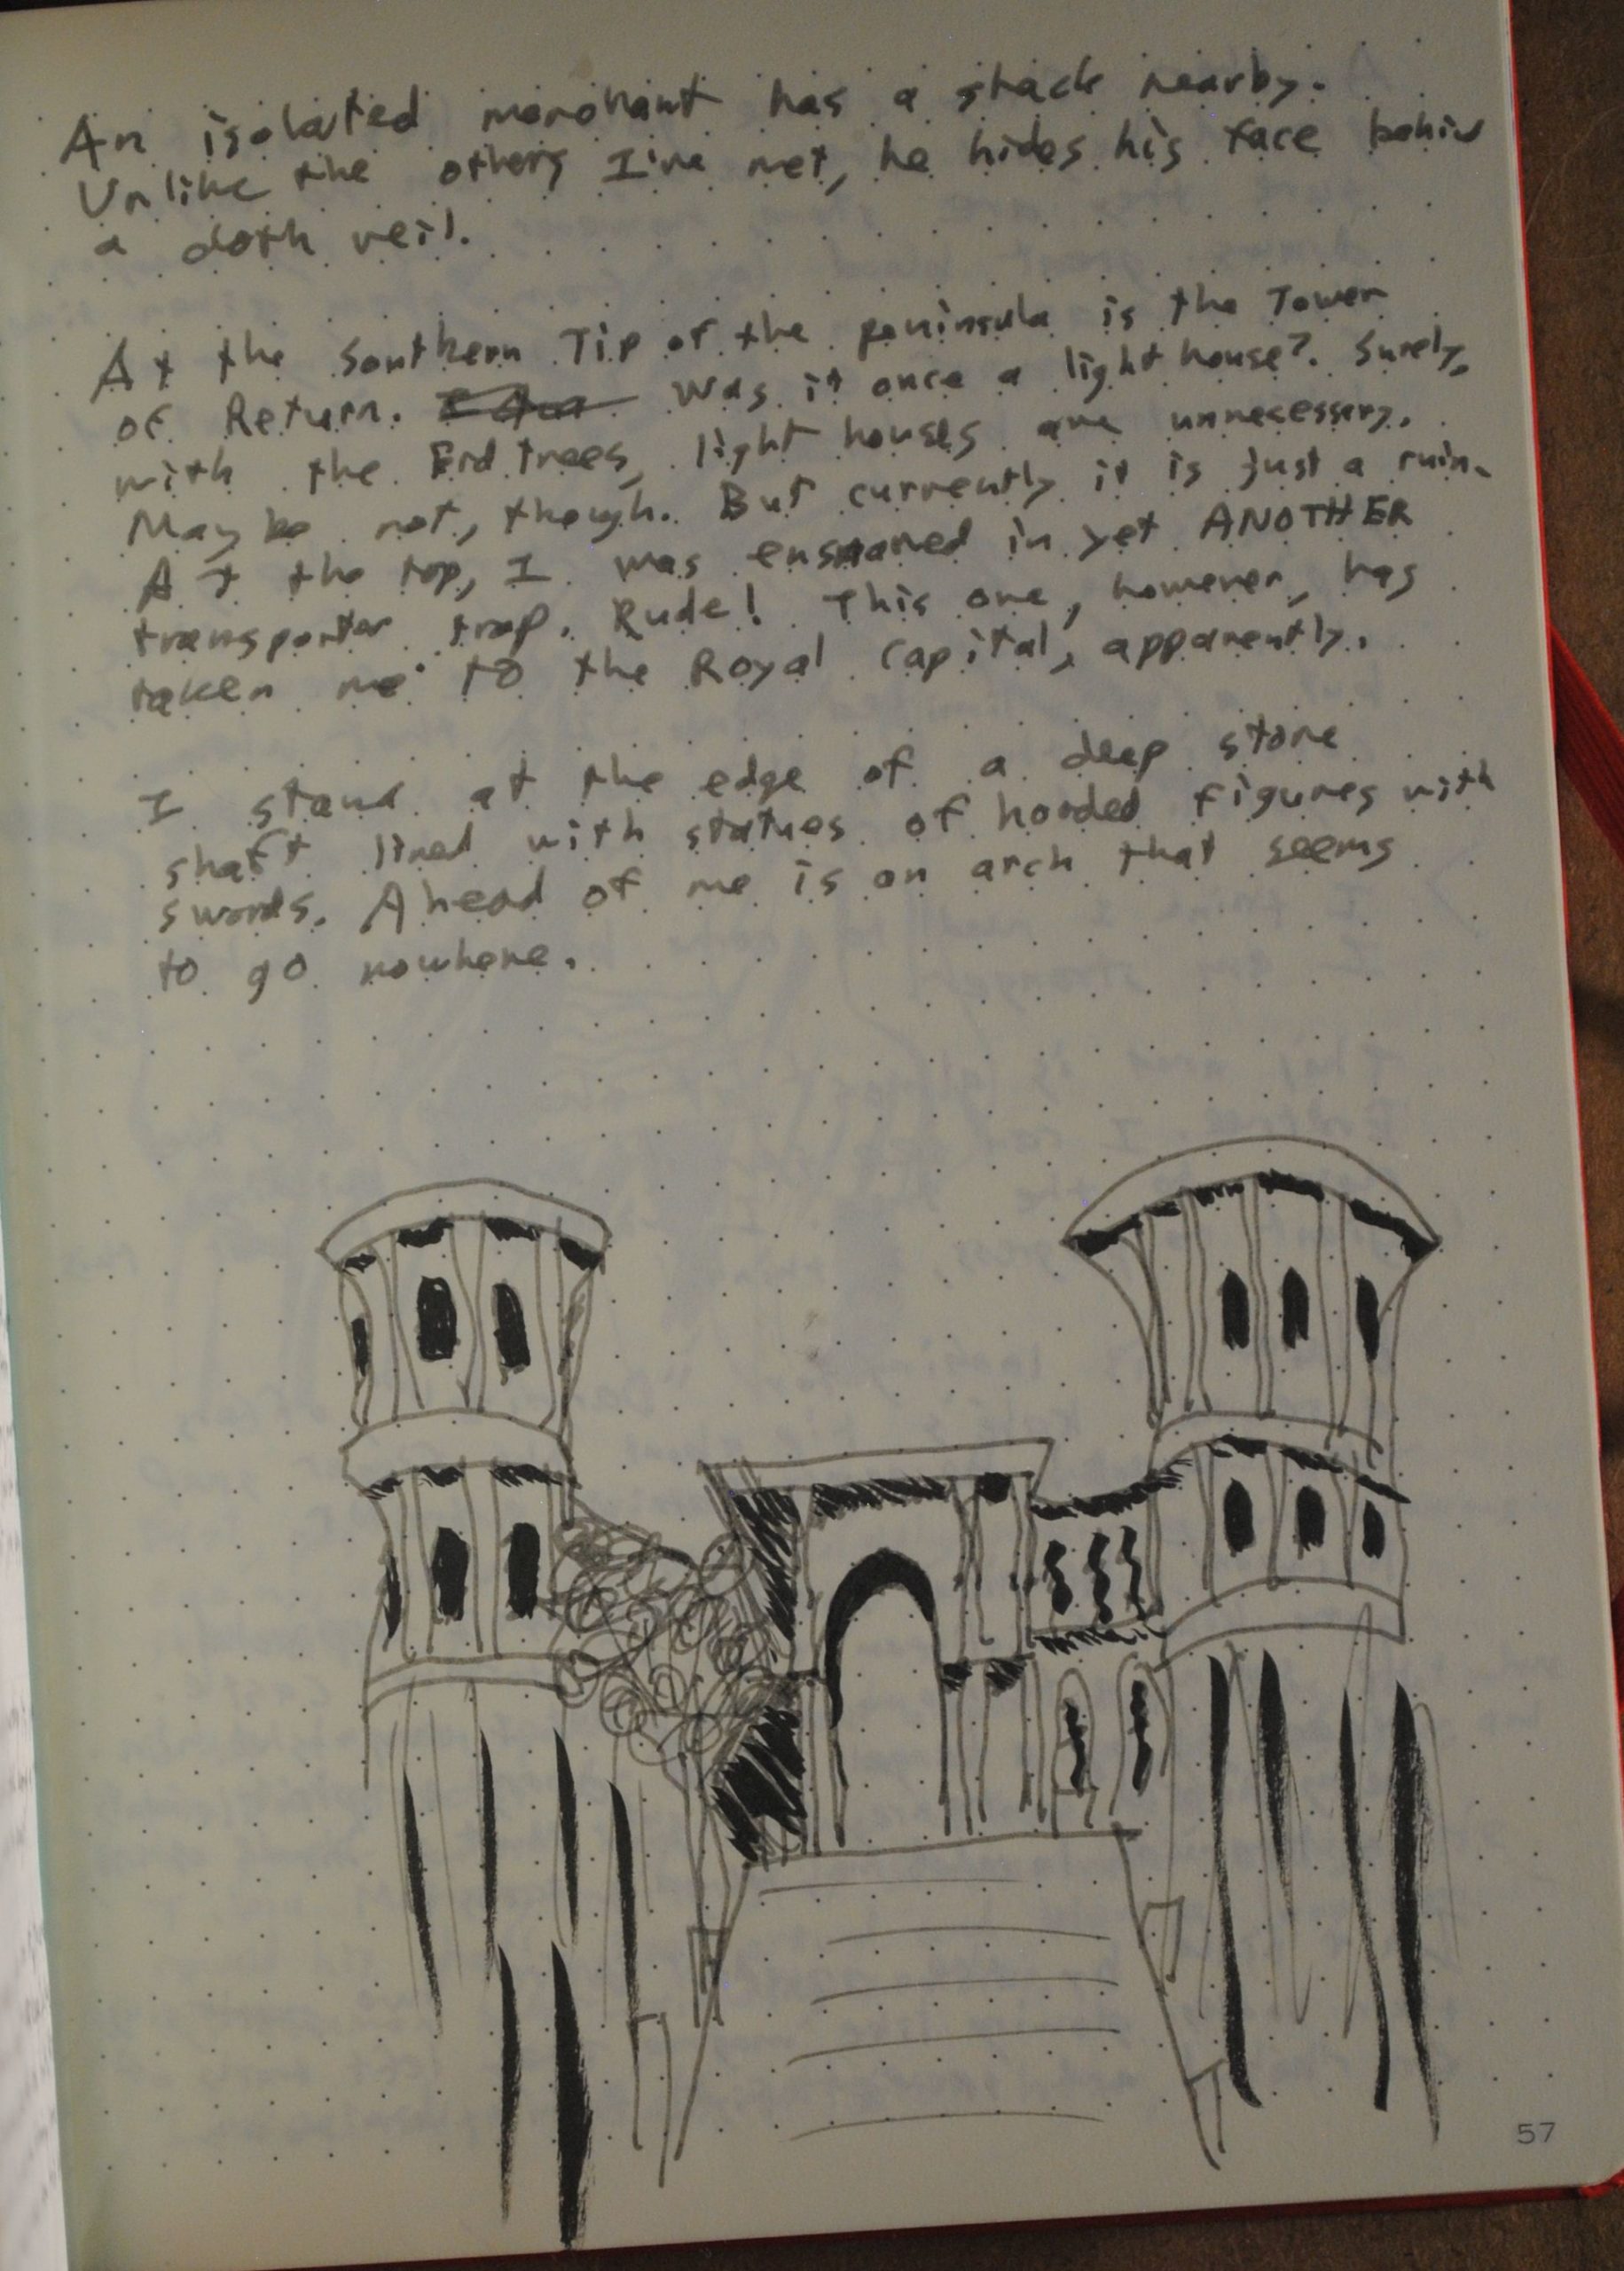 An isolated merchant has a shack nearby.
Unlike the others I've met, he hides his face behin
a cloth veil.
At the Southern Tip of the peninsula is the Tower
of Return. Was it once a lighthouse?. Surely,
with the Erd trees, light houses are unnecessary.
Maybe not, though. But currently it is just a ruin.
At the top, I was ensnared in yet ANOTHER
transporter trap. Rude! This one, however, has
taken me to the Royal Capital, apparently.
I stand at the edge of a deep stone
shaft lined with statues of hooded figures with
swords. Ahead of me is an arch that seems
to go nowhere.
57